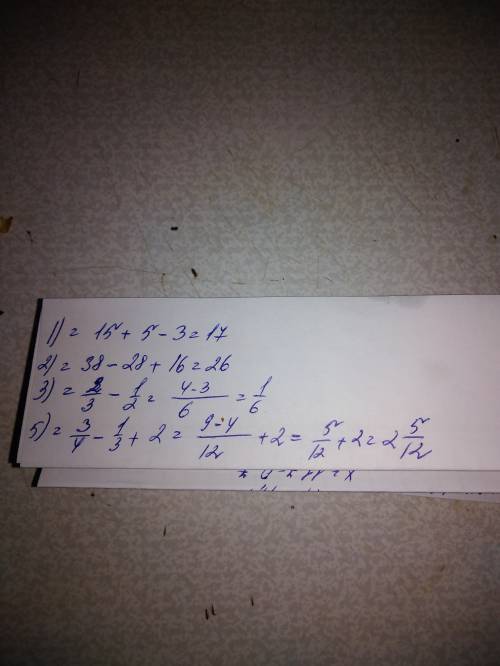 1) = 15 + 5 - 3 = 17
2) = 38 - 28 + 16 = 26
3) = 2/3 - 1/2 = 4-3/6 = 1/6
5) = 3/4 - 1/3 + 2 = 9-4/12 + 2 = 5/12 + 2 = 2 5/12